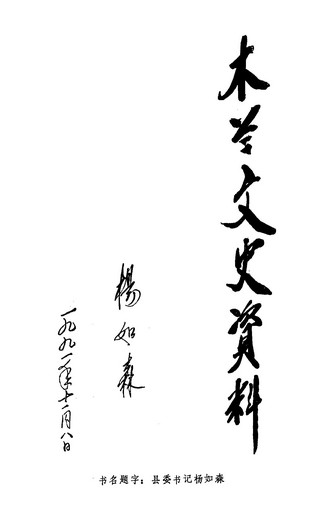 木兰文史資料
楊如森
一九九一年十一月八日
书名题字：县委书记杨如森